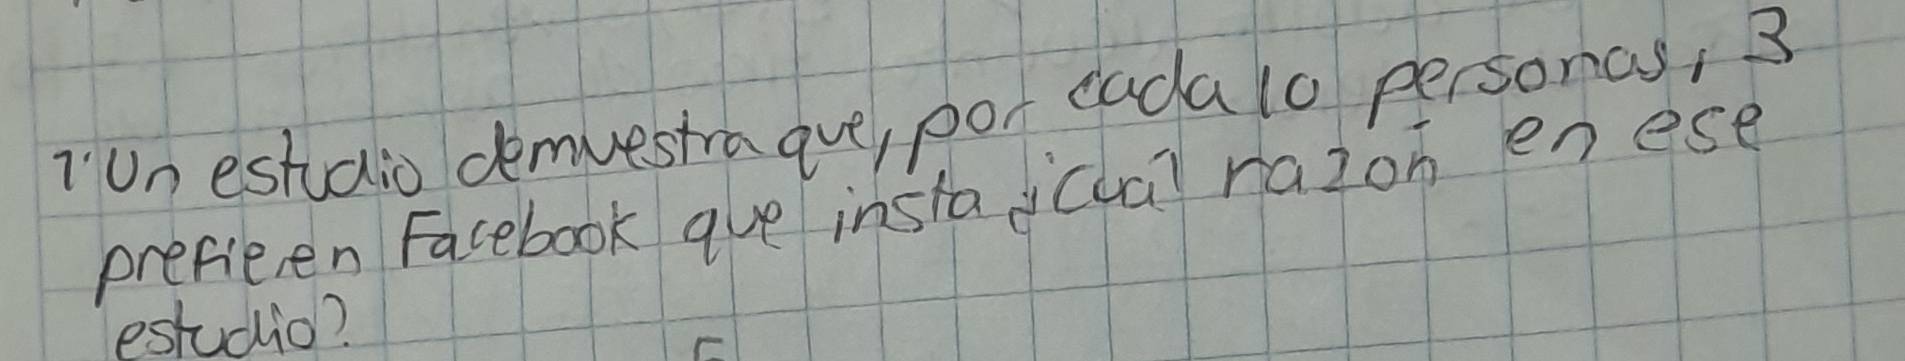 1. Un estudio demuestra que, por cada 10 personas, 3
prefieren Facebook que insta ¿Cuál razón en ese
estudio?